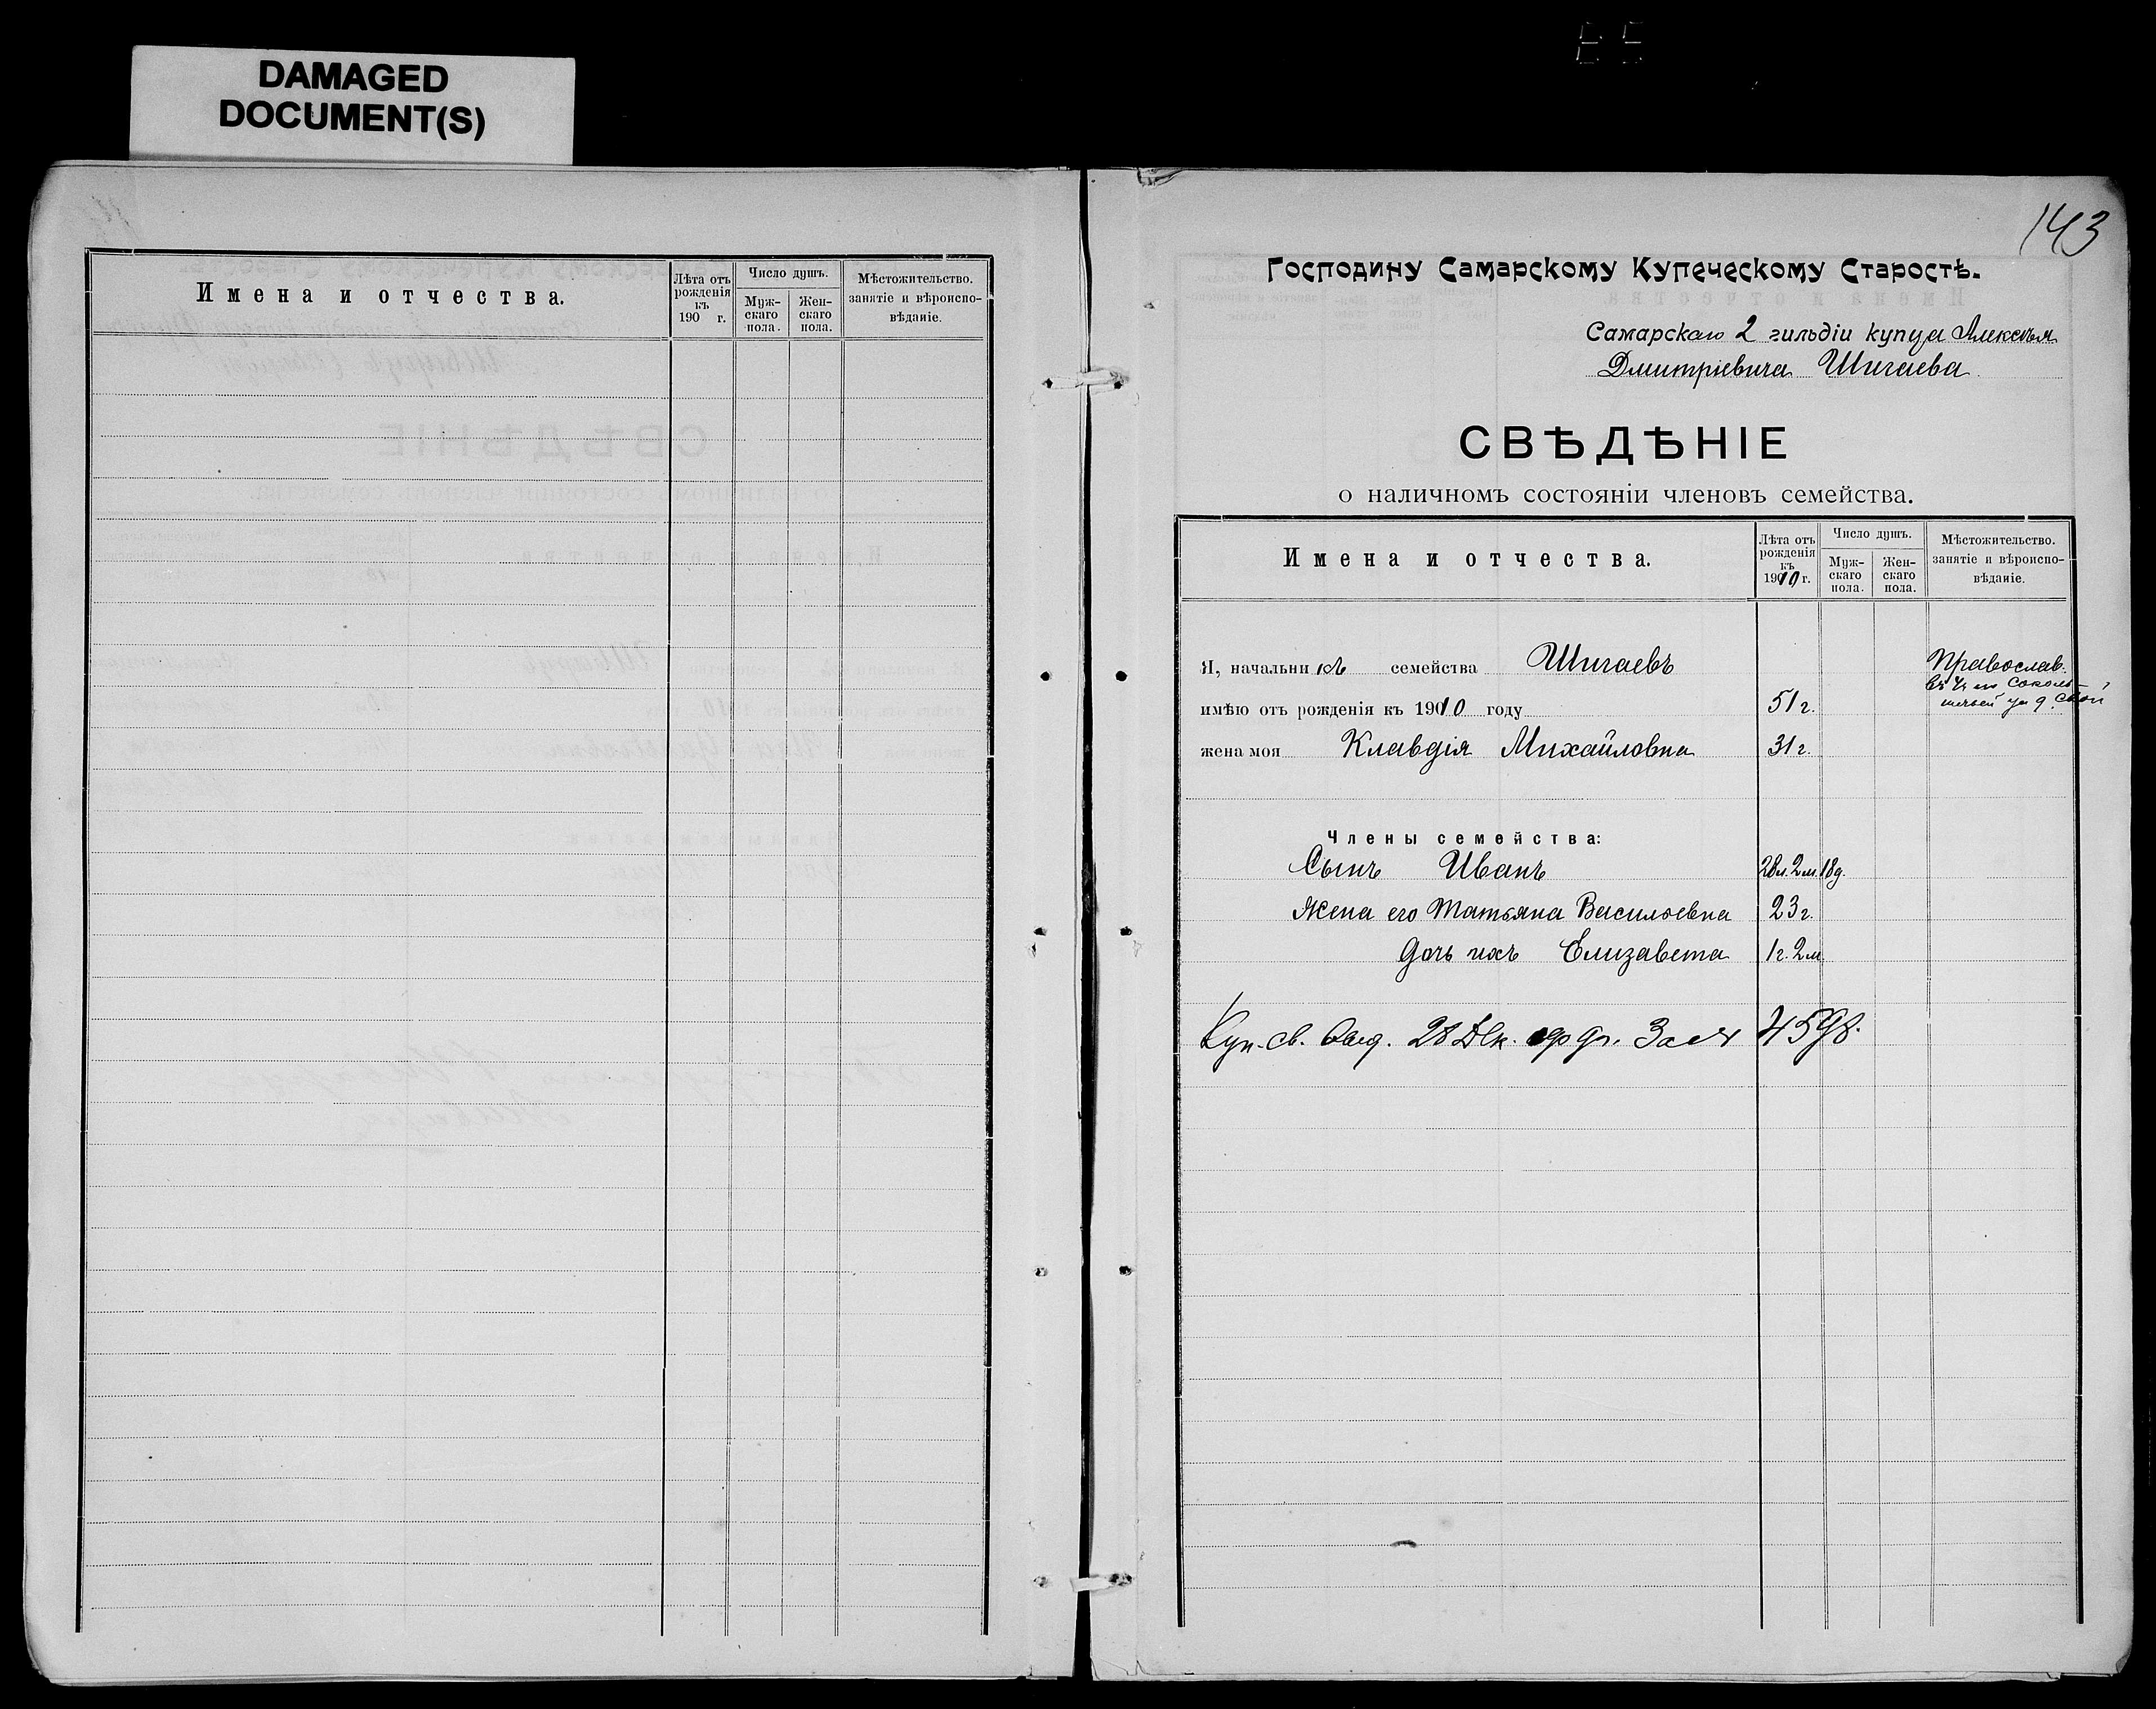 DAMAGED
DOCUMENT(S)
Имена и отчества.
Лѣта отъ рожденія къ 190 г.
Число душъ.
Муж-скаго пола.
Жен-скаго пола.
Мѣстожительство. занятіе и вѣроиспо-вѣданіе.
143
Господину Самарскому Купеческому Старостѣ.
Самарскаго 2 гильдіи купца Алексѣя
Дмитріевича Шигаева
СВѢДѢНІЕ
о наличномъ состояніи членовъ семейства.
Имена и отчества.
Лѣта отъ рожденія къ 1910 г.
Число душъ.
Муж-скаго пола.
Жен-скаго пола.
Мѣстожительство. занятіе и вѣроиспо-вѣданіе.
Я, начальникъ семейства Шигаевъ Православ.
имѣю отъ рожденія къ 1910 году 51 г.
жена моя Клавдія Михайловна 31 г.
Члены семейства:
Сынъ Иванъ 28л. 2м. 18д.
Жена его Татьяна Васильевна 23 г.
дочь ихъ Елизавета 1 г. 2 м
Куп. св. 28 Дек. 4598.